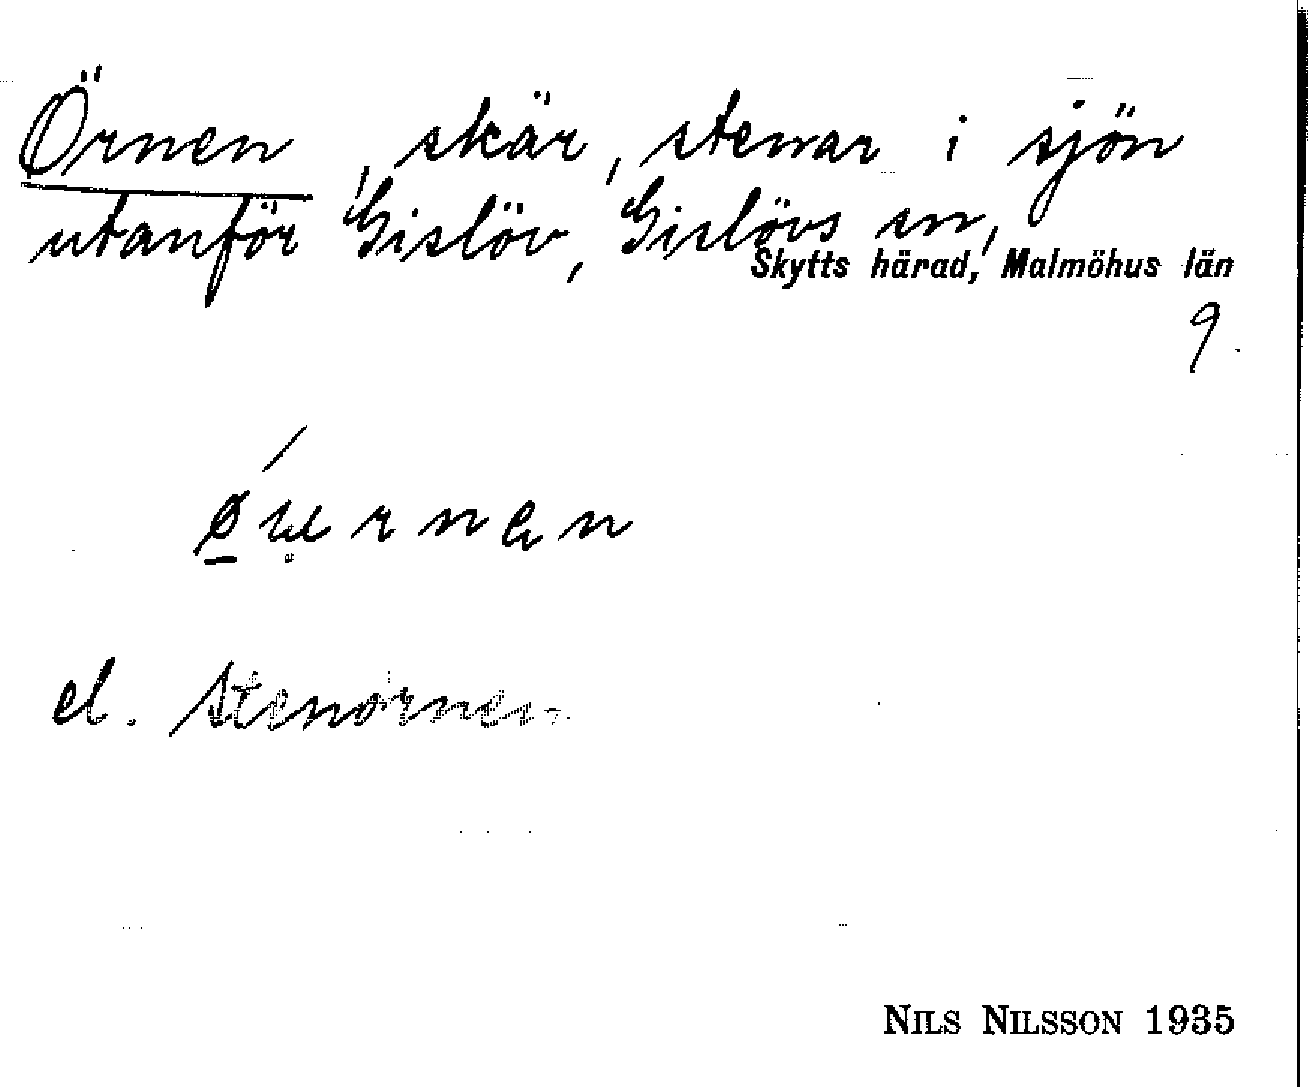 Örnen, skär, stenar i sjön
utanför Gislöv, Gislövs sn,
Skytts härad, Malmöhus län
9.
el. Stenörnen
NILS NILSSON 1935